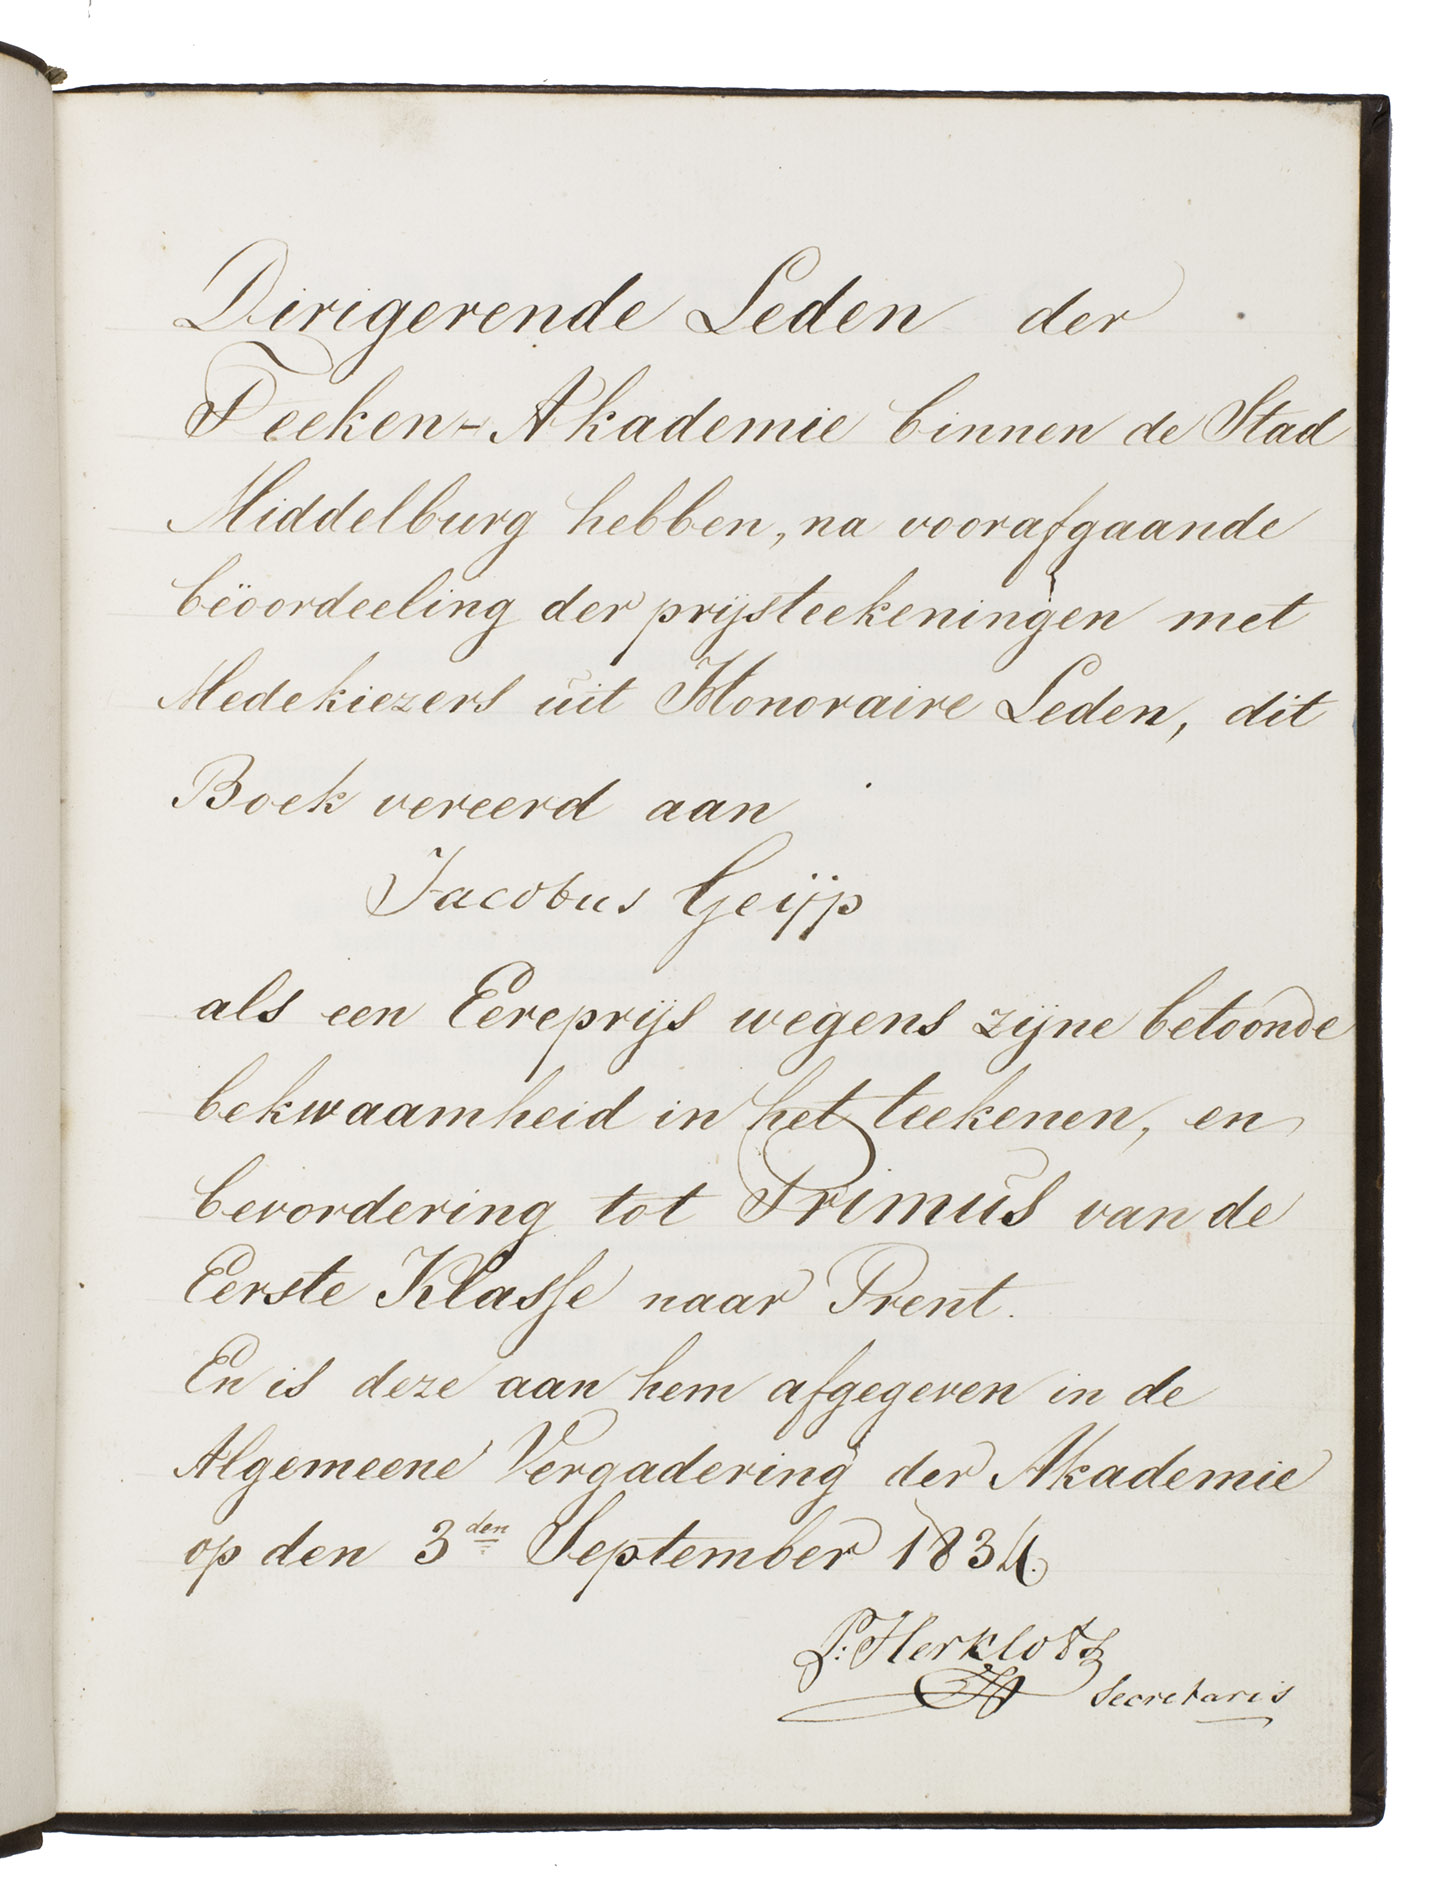 Dirigerende Leden der
Teeken-Akademie binnen de Stad
Middelburg hebben, na voorafgaande
beöordeeling der prijsteekeningen met
Medekiezers uit Honoraire Leden, dit
Boek vereerd aan
Jacobus Geijp
als een Eereprijs wegens zijne betoonde
bekwaamheid in het teekenen, en
bevordering tot Primus van de
Eerste Klasse naar Prent.
En is deze aan hem afgegeven in de
Algemeene Vergadering der Akademie
op den 3den September 1834.
P: Herklots
Secretaris